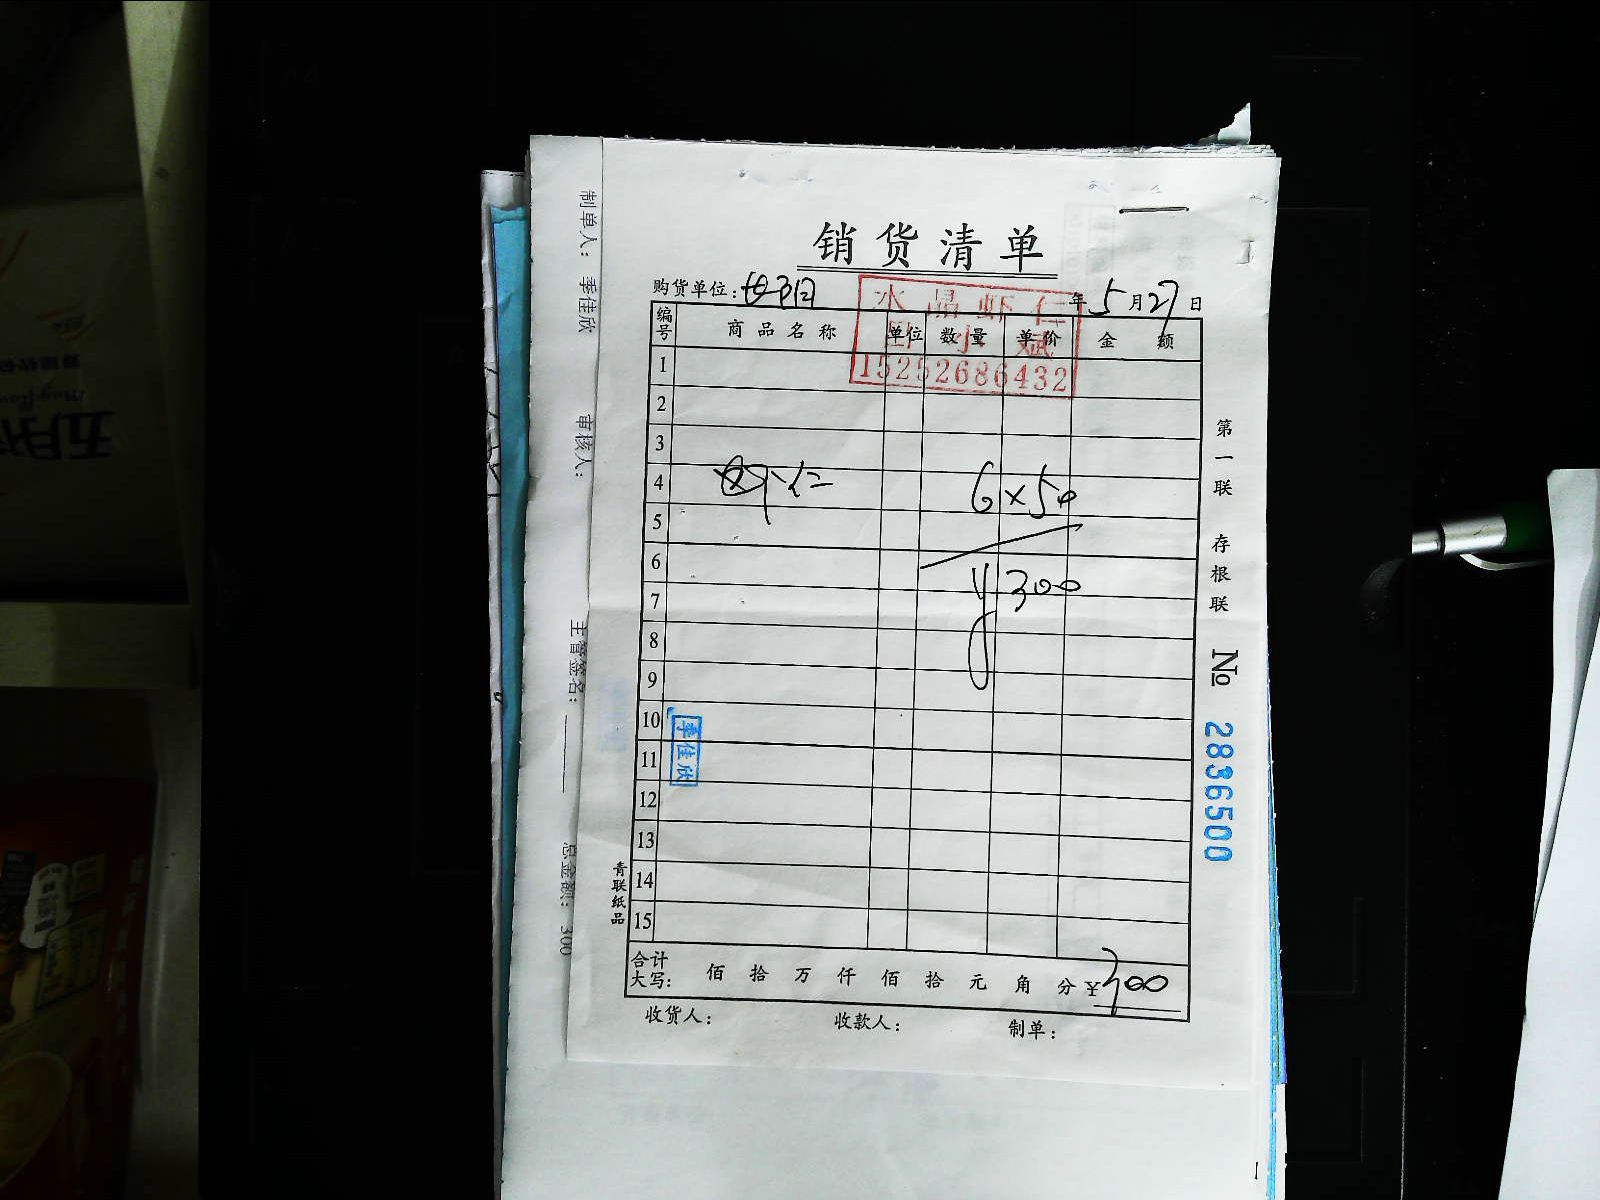 销货清单
购货单位: 年 5 月 27 日
水晶虾仁
15252686432
编号 商品名称 单位 数量 单价 金额
1
2
3
4 虾仁 6×50
5
6
7 ¥300
8
9
10
11
12
13
14
15
季佳欣
合计大写: 佰 拾 万 仟 佰 拾 元 角 分 ¥300
收货人: 收款人: 制单:
第一联 存根联 № 2836500
青联纸品
制单人: 季佳欣 审核人: 主管签名: 总金额: 300
五月花